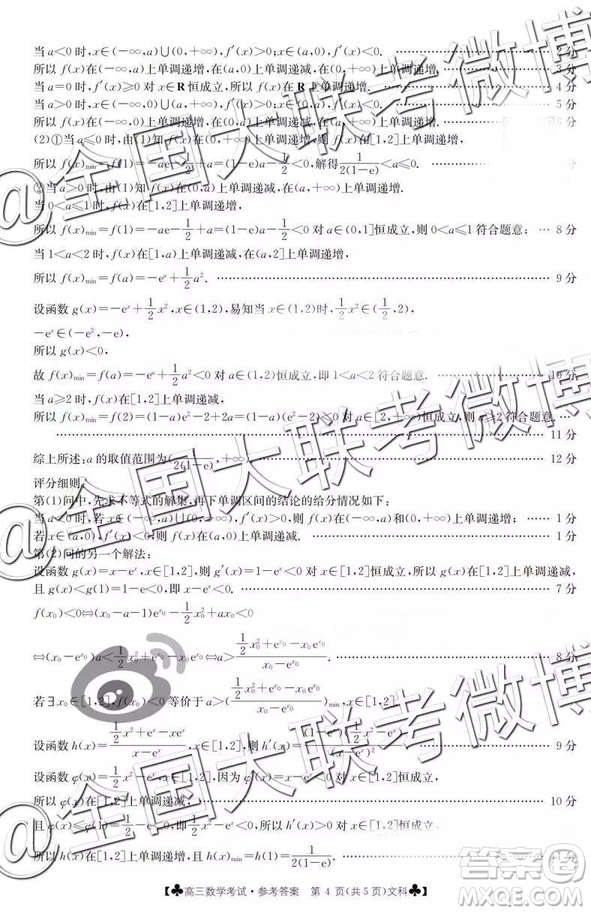 当a<0时,x∈(-∞,a)∪(0,+∞),f′(x)>0;x∈(a,0),f′(x)<0. 2分
所以f(x)在(-∞,a)上单调递增,在(a,0)上单调递减,在(0,+∞)上单调递增. 3分
当a=0时,f′(x)≥0对x∈R恒成立,所以f(x)在R上单调递增. 4分
当a>0时,x∈(-∞,0)∪(a,+∞),f′(x)>0;x∈(0,a),f′(x)<0. 5分
所以f(x)在(-∞,0)上单调递增,在(0,a)上单调递减,在(a,+∞)上单调递增.
(2)①当a≤0时,由(1)知f(x)在[1,2]上单调递增,
所以f(x)min=f(1)=-ea-1/2+a=(1-e)a-1/2<0,解得1/2(1-e)<a≤0.
②当a>0时,由(1)知f(x)在(0,a)上单调递减,在(a,+∞)上单调递增.
当0<a≤1时,f(x)在[1,2]上单调递增,
所以f(x)min=f(1)=-ea-1/2+a=(1-e)a-1/2<0对a∈(0,1]恒成立,则0<a≤1符合题意; 8分
当1<a<2时,f(x)在[1,a)上单调递减,在(a,2]上单调递增,
所以f(x)min=f(a)=-eᵃ+1/2a². 9分
设函数g(x)=-eˣ+1/2x²,x∈(1,2),易知当x∈(1,2)时,1/2x²∈(1/2,2),
-eˣ∈(-e²,-e)
所以g(x)<0,
故f(x)min=f(a)=-eᵃ+1/2a²<0对a∈(1,2)恒成立,即1<a<2符合题意. 10分
当a≥2时,f(x)在[1,2]上单调递减,
所以f(x)min=f(2)=(1-a)e²-2+2a=(1-e²)a+e²-2<0对a∈[2,+∞)恒成立,则a≥2符合题意.
11分
综上所述:a的取值范围为(1/2(1-e),+∞). 12分
评分细则:
第(1)问中,先求不等式的解集,再下单调区间的结论的给分情况如下:
当a<0时,若x∈(-∞,a)∪(0,+∞),f′(x)>0,所以f(x)在(-∞,a)和(0,+∞)上单调递增; 1分
若x∈(a,0),f′(x)<0,所以f(x)在(a,0)上单调递减. 1分
第(2)问的另一个解法:
设函数g(x)=x-eˣ,x∈[1,2],则g′(x)=1-eˣ<0对x∈[1,2]恒成立,所以g(x)在[1,2]上单调递减,
且g(x)<g(1)<0,即x-eˣ<0. 7分
f(x₀)<0⇔(x₀-a-1)e^x₀-1/2x₀²+ax₀<0
⇔(x₀-e^x₀)a<1/2x₀²+e^x₀-x₀e^x₀⇔a>(1/2x₀²+e^x₀-x₀e^x₀)/(x₀-e^x₀). 8分
若∃x₀∈[1,2],f(x₀)<0等价于a>()min,x∈[1,2],
设函数h(x)=(1/2x²+eˣ-xeˣ)/(x-eˣ),x∈[1,2],则h′(x)= 9分
设函数φ(x)=1/2x²-x-eˣ,x∈[1,2],因为φ′(x)=x-1-eˣ<0对x∈[1,2]恒成立,
所以φ(x)在[1,2]上单调递减, 10分
且φ(x)≤φ(1)=-1/2-e<0,所以h′(x)>0对x∈[1,2]恒成立,
所以h(x)在[1,2]上单调递增,则h(x)min=h(1)=1/2(1-e). 11分
♣高三数学考试·参考答案 第4页(共5页)文科♣
@全国大联考微博
@全国大联考微博
@全国大联考微博
答案圈
MXQE.COM